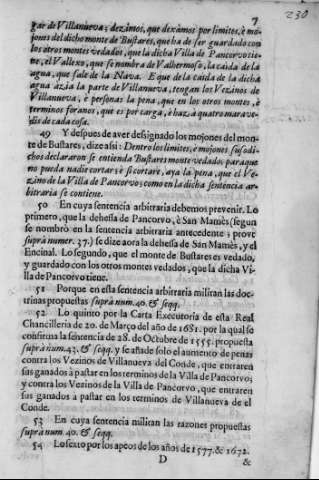 7
230
gar de Villanueva; dezimos, que dexamos por limites, è mo-
jones del dicho monte de Bustares, que ha de ser guardado con
los otros montes vedados, que la dicha Villa de Pancorvo tie-
ne, el Vallexo, que se nombra de Valhermoso, la caida de la
agua, que sale de la Nava. E que de la caida de la dicha
agua azia la parte de Villanueva, tengan los Vezinos de
Villanueva, è personas la pena, que en los otros montes, è
terminos foranos, que es por carga, è haz, à quatro marave-
dis de cada cosa.
49 Y despues de aver designado los mojones del mon-
te de Bustares, dize assi: Dentro los limites, è mojones susodi-
chos declararon se entienda Bustares monte vedado, para que
no pueda nadie cortar; è si cortare, aya la pena, que el Ve-
zino de la Villa de Pancorvo; como en la dicha sentencia ar-
bitraria se contiene.
50 En cuya sentencia arbitraria debemos prevenir. Lo
primero, que la dehessa de Pancorvo, è San Mamès (segun
se nombrò en la sentencia arbitraria antecedente; prove
suprà numer. 37.) se dize aora la dehessa de San Mamès, y el
Encinal. Lo segundo, que el monte de Bustares es vedado,
y guardado con los otros montes vedados, que la dicha Vi-
lla de Pancorvo tiene.
51 Porque en esta sentencia arbitraria militan las doc-
trinas propuestas suprà num. 40. & seqq.
52 Lo quinto por la Carta Executoria de esta Real
Chancilleria de 20. de Março del año de 1681. por la qual se
confirma la sentencia de 28. de Octubre de 1555. propuesta
suprà num. 43. & seqq. y se añade solo el aumento de penas
contra los Vezinos de Villanueva del Conde, que entraren
sus ganados à pastar en los terminos de la Villa de Pancorvo;
y contra los Vezinos de la Villa de Pancorvo, que entraren
sus ganados a pastar en los terminos de Villanueva el
Conde.
53 En cuya sentencia militan las razones propuestas
suprà num. 40. & seqq.
54 Lo sexto por los apeos de los años de 1577. & 1672.
D &